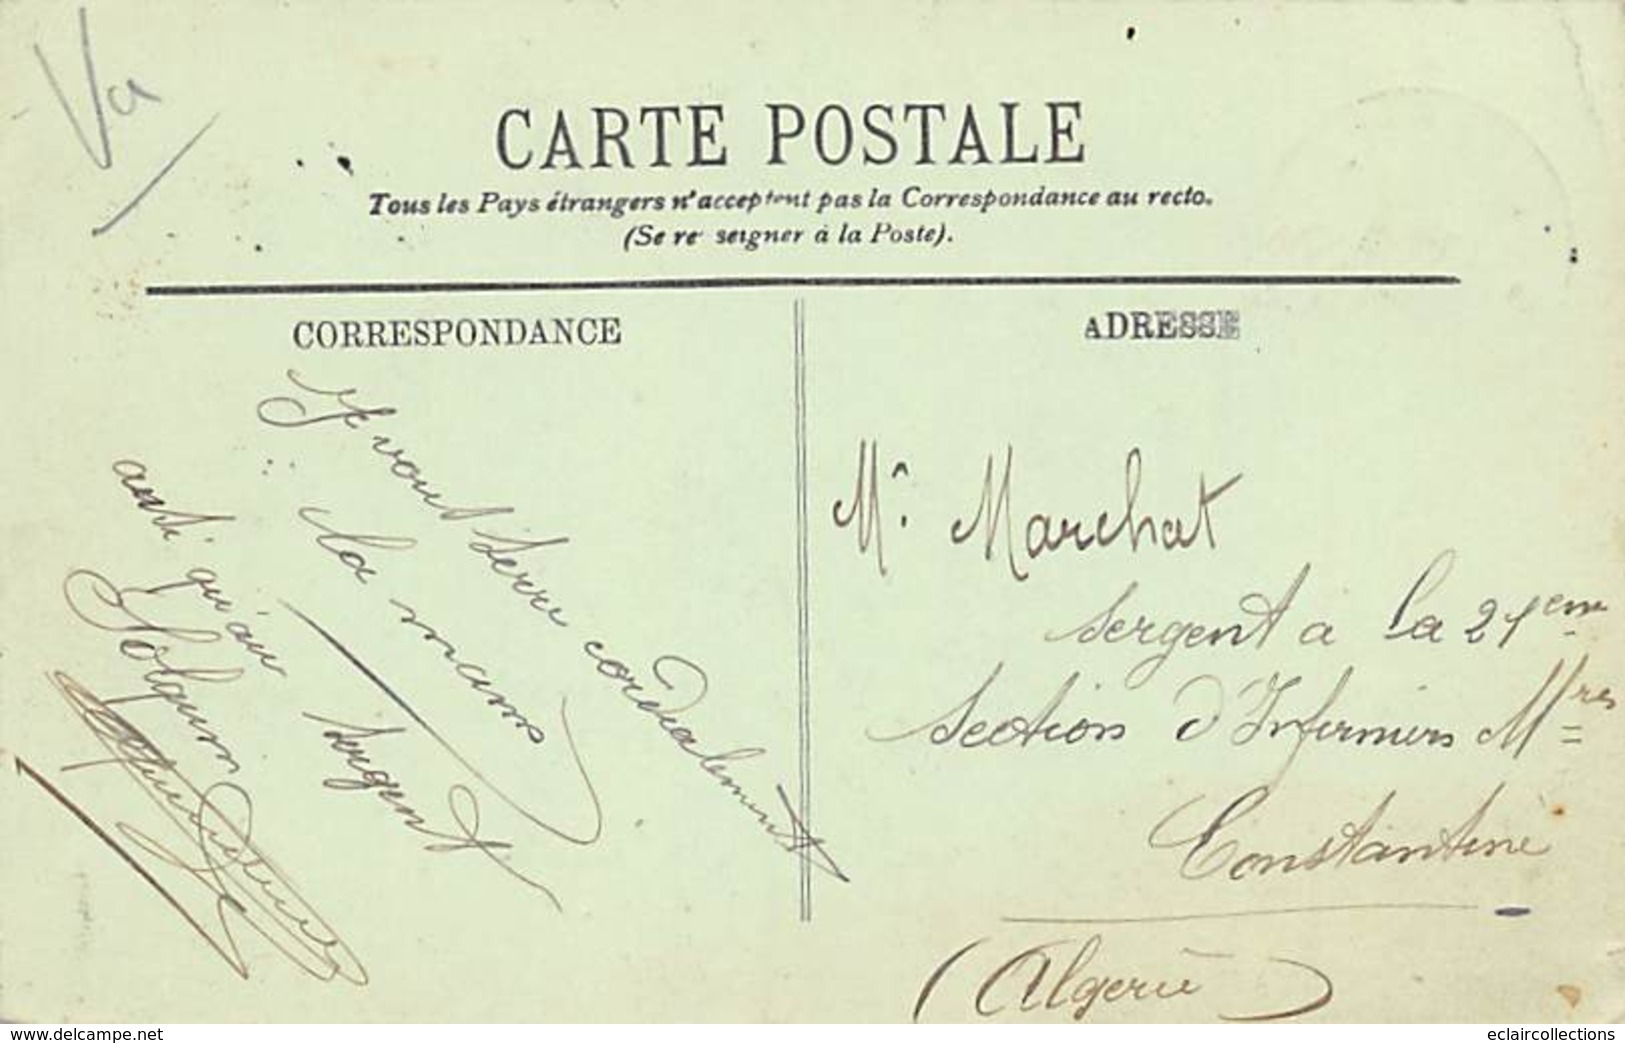 Va
CARTE POSTALE
Tous les Pays étrangers n'acceptent pas la Correspondance au recto.
(Se re seigner à la Poste).
CORRESPONDANCE
Je vous serre cordialement
la main
ainsi qu'au sergent
ADRESSE
Mr. Marchat
Sergent a la 21eme
Section d'Infirmiers Mres
Constantine
(Algérie)
www.delcampe.net
eclaircollections